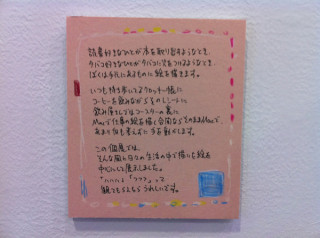 読書好きなひとが本を取り出すようなとき、
タバコ好きなひとがタバコに火をつけるようなとき、
ぼくは手元にあるものに絵を描きます。
いつも持ち歩いてるクロッキー帳に
コーヒーを飲みながらそのレシートに
飲み屋さんではコースターの裏に
Macで仕事の絵を描く合間ならそのままMacで、
あまり何も考えずに手を動かします。
この個展では、
そんな風に日々の生活の中で描いた絵を
中心にして展示しました。
「つつつ」って
観てもらえたらうれしいです。